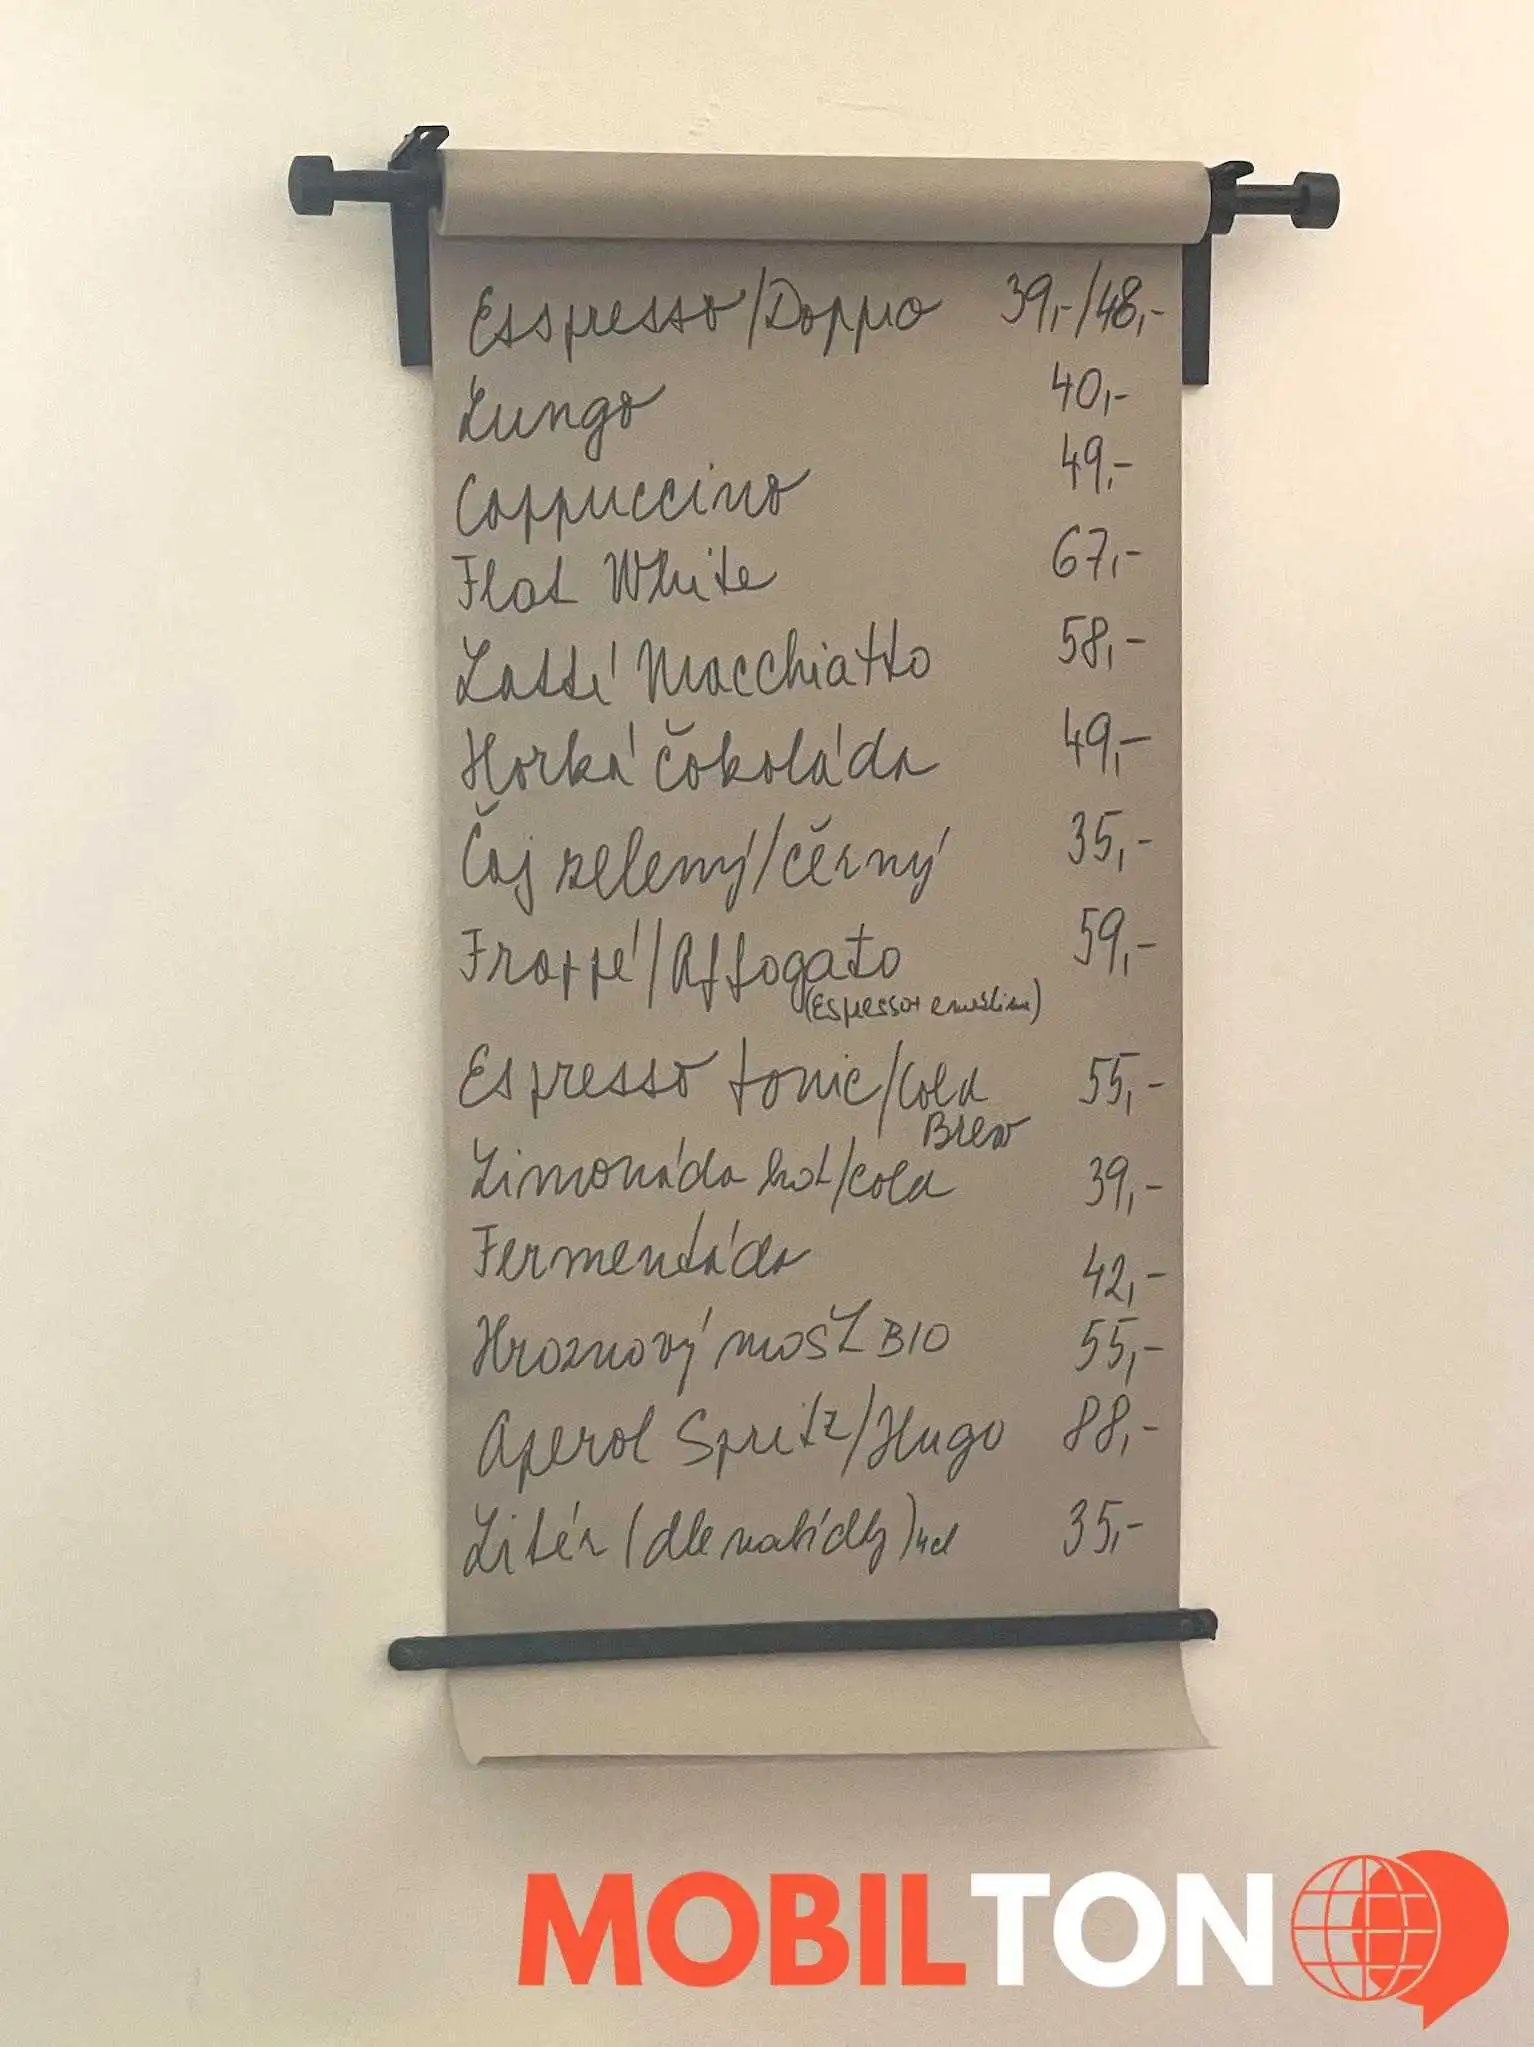 Esspresso/Doppio 39,-/48,-
Lungo 40,-
Cappuccino 49,-
Flat White 67,-
Latté Macchiatto 58,-
Horká čokoláda 49,-
Čaj zelený/černý 35,-
Frappé/Affogato 59,-
(Espresso+
Espresso tonic/Cold 55,-
Brew
Limonáda hot/cold 39,-
Fermentáda 42,-
Hroznový mošt BIO 55,-
Aperol Spritz/Hugo 88,-
(dle nabídky) 35,-
MOBILTON